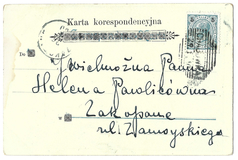 Karta korespondencyjna
Do
Jwielmożna Panna
Helena Pawlicówna
Zakopane
ul. Zamoyskiego